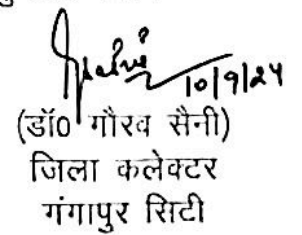 10/9/24
(डॉ0 गौरव सैनी)
जिला कलेक्टर
गंगापुर सिटी